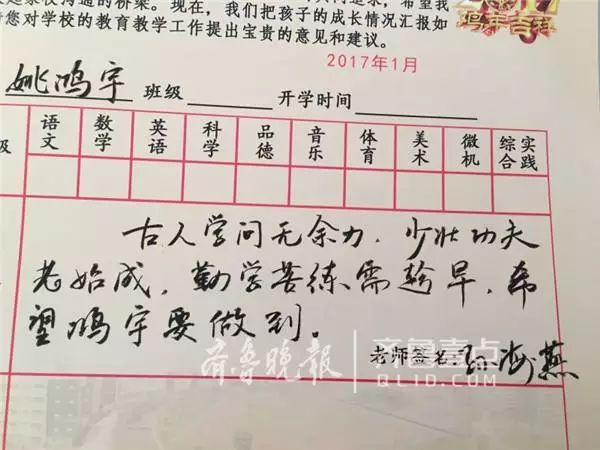 是家校沟通的桥梁。现在，我们把孩子的成长情况汇报如
请您对学校的教育教学工作提出宝贵的意见和建议。
鸡年吉祥
2017年1月
姚鸿宇 班级 开学时间
级 语文 数学 英语 科学 品德 音乐 体育 美术 微机 综合实践
古人学问无余力，少壮功夫
老始成，勤学苦练需趁早，希
望鸿宇要做到。
老师签名: 海燕
齐鲁晚报 齐鲁壹点
QLID.COM